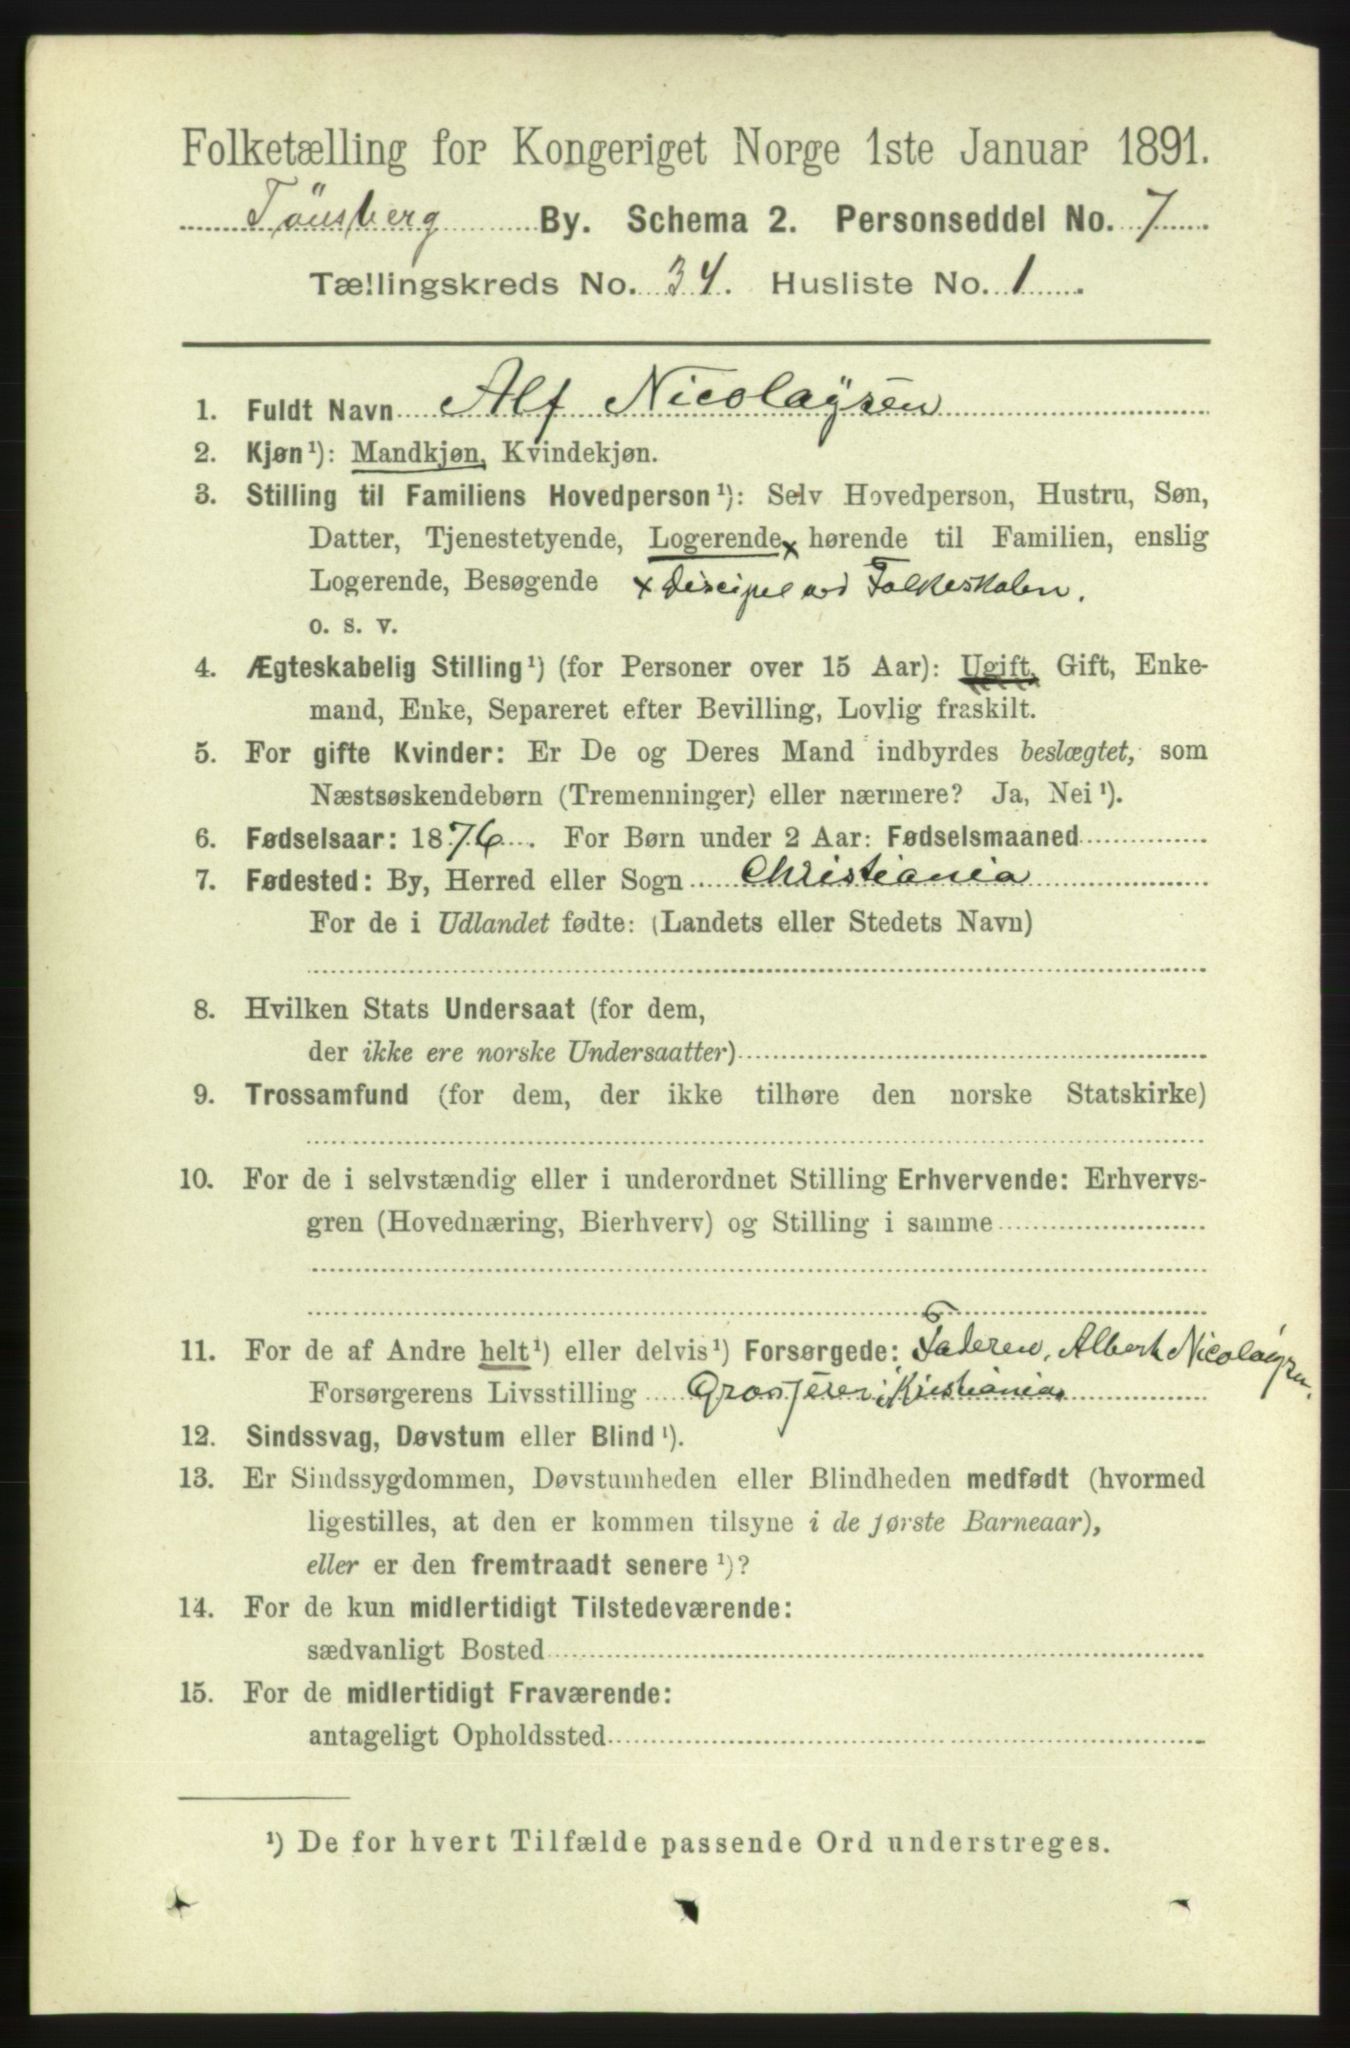 Folketælling for Kongeriget Norge 1ste Januar 1891.
Tönsberg By. Schema 2. Personseddel No. 7
Tællingskreds No. 34. Husliste No. 1
1. Fuldt Navn Alf Nicolaÿsen
2. Kjøn¹): Mandkjøn, Kvindekjøn.
3. Stilling til Familiens Hovedperson¹): Selv Hovedperson, Hustru, Søn,
Datter, Tjenestetyende, Logerende x hørende til Familien, enslig
Logerende, Besøgende x Discipel ved Folkeskolen.
o. s. v.
4. Ægteskabelig Stilling¹) (for Personer over 15 Aar): Ugift, Gift, Enke-
mand, Enke, Separeret efter Bevilling, Lovlig fraskilt.
5. For gifte Kvinder: Er De og Deres Mand indbyrdes beslægtet, som
Næstsøskendebørn (Tremenninger) eller nærmere? Ja, Nei¹).
6. Fødselsaar: 1876. For Børn under 2 Aar: Fødselsmaaned
7. Fødested: By, Herred eller Sogn Christiania
For de i Udlandet fødte: (Landets eller Stedets Navn)
8. Hvilken Stats Undersaat (for dem,
der ikke ere norske Undersaatter)
9. Trossamfund (for dem, der ikke tilhøre den norske Statskirke)
10. For de i selvstændig eller i underordnet Stilling Erhvervende: Erhvervs-
gren (Hovednæring, Bierhverv) og Stilling i samme
11. For de af Andre helt¹) eller delvis¹) Forsørgede: Faderen, Albert Nicolaysen.
Forsørgerens Livsstilling Grosserer i Kristiania.
12. Sindssvag, Døvstum eller Blind¹).
13. Er Sindssygdommen, Døvstumheden eller Blindheden medfødt (hvormed
ligestilles, at den er kommen tilsyne i de første Barneaar),
eller er den fremtraadt senere¹)?
14. For de kun midlertidigt Tilstedeværende:
sædvanligt Bosted
15. For de midlertidigt Fraværende:
antageligt Opholdssted
¹) De for hvert Tilfælde passende Ord understreges.